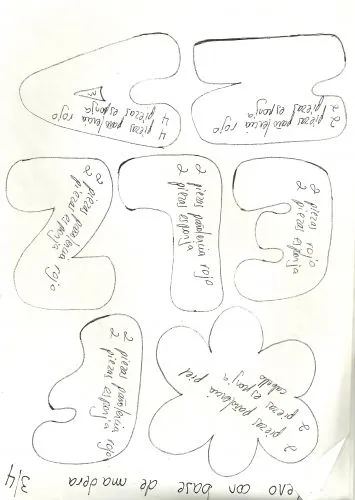 4 piezas pañolencia rojo
4 piezas esponja
2 piezas pañolencia rojo
2 piezas esponja
2 piezas pañolencia rojo
2 piezas esponja
2 piezas pañolencia rojo
2 piezas esponja
2 piezas rojo
2 piezas esponja
2 piezas pañolencia rojo
2 piezas esponja
2 piezas pañolencia piel
2 piezas esponja
cabello
eno con base de madera 3/4